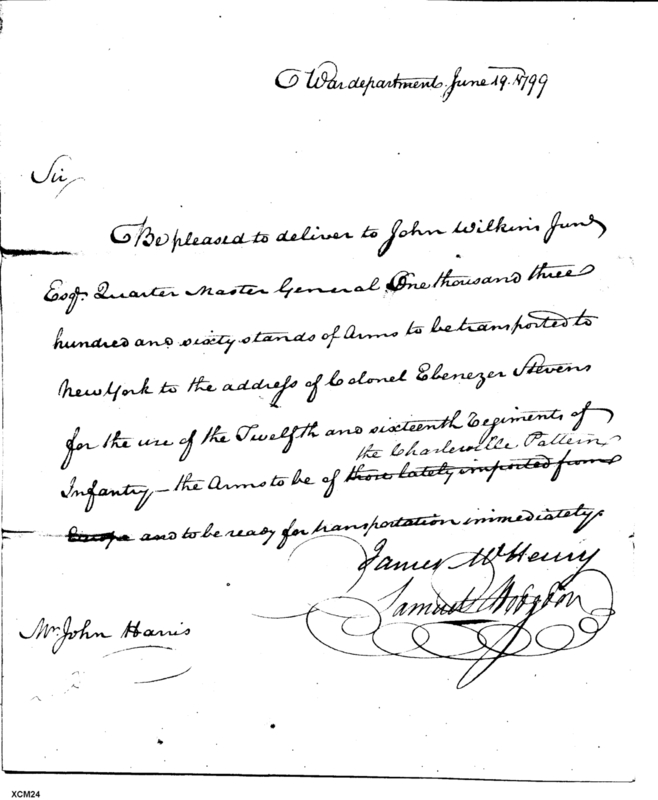 War department June 19. 1799
Sir
Be pleased to deliver to John Wilkins Junr
Esqr. Quarter Master General One thousand three
hundred and sixty stands of Arms to be transported to
New York to the address of Colonel Ebenezer Stevens
for the use of the Twelfth and sixteenth Regiments of
the Charleville Pattern
Infantry – the Arms to be of those lately imported from
Europe and to be ready for transportation immediately.
James McHenry
Samuel Hodgdon
Mr. John Harris
XCM24